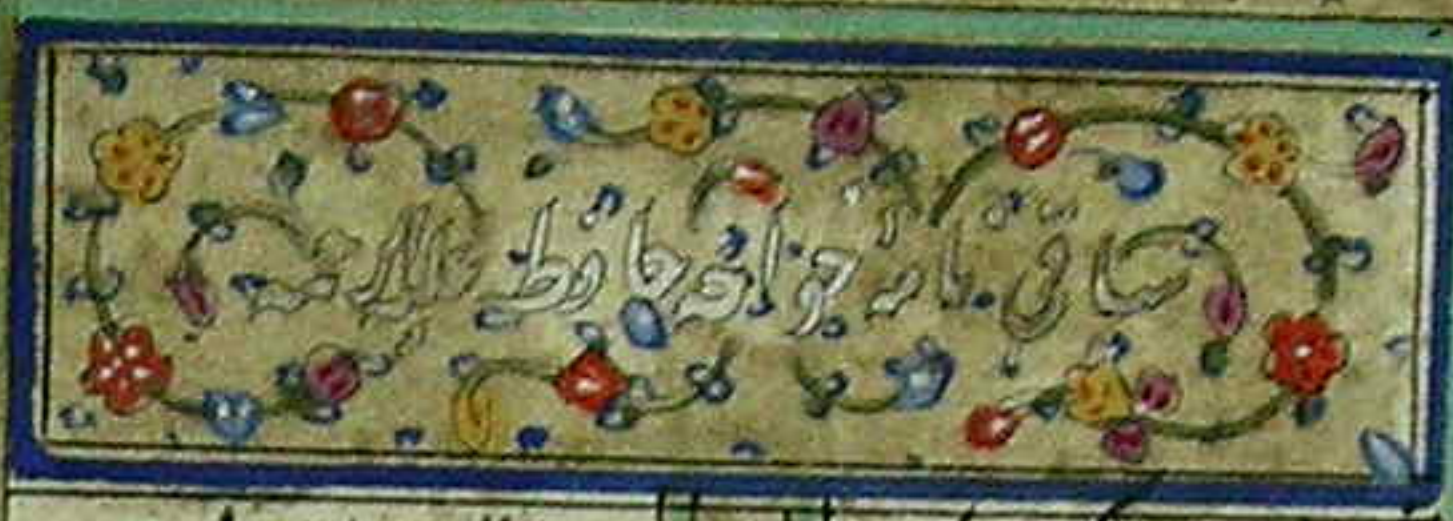 ساقی نامه خواجه حافظ علیه الرحمه